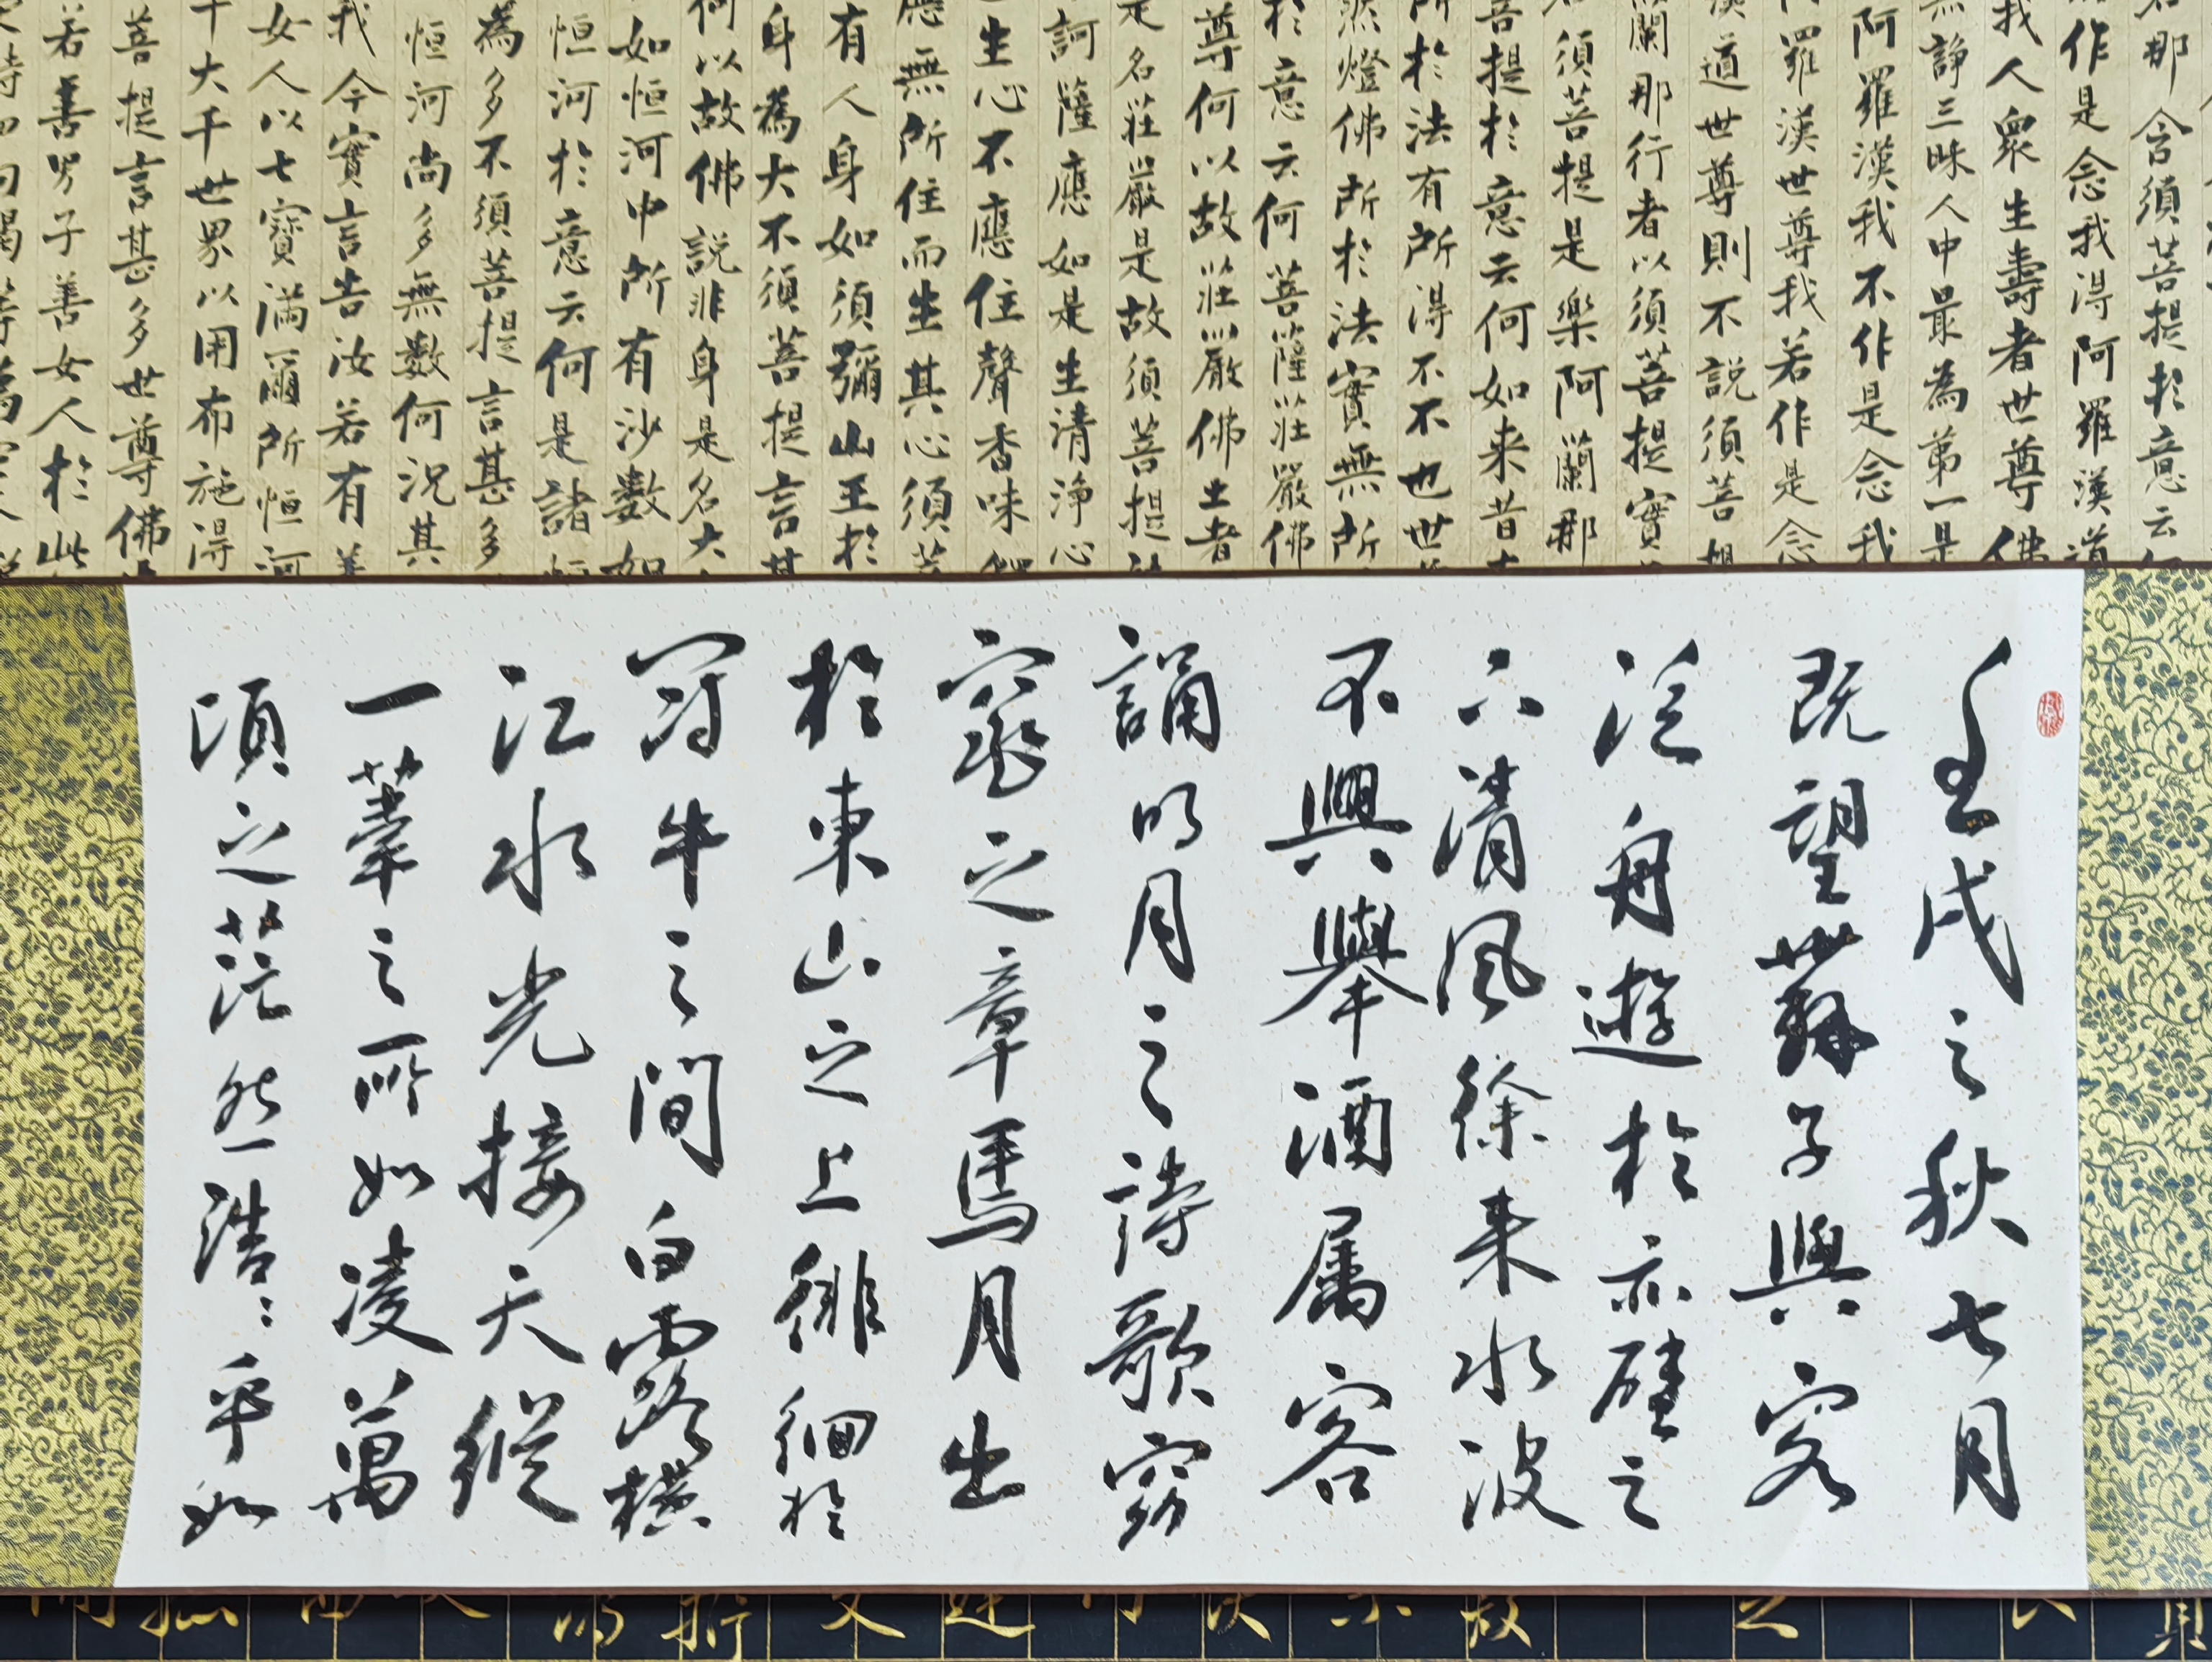 那含須菩提於意云何
作是念我得阿羅漢道
我人眾生壽者世尊佛
無諍三昧人中最為第一是
阿羅漢我不作是念我
羅漢世尊我若作是念
漢道世尊則不說須菩提
蘭那行者以須菩提實
須菩提是樂阿蘭那
菩提於意云何如来昔
所於法有所得不不也世
然燈佛所於法實無所
於意云何菩薩莊嚴佛
尊何以故莊嚴佛土者
是名莊嚴是故須菩提
訶薩應如是生清淨心
生心不應住聲香味
應無所住而生其心須菩
有人身如須彌山王於
身為大不須菩提言甚
何以故佛說非身是名大
如恒河中所有沙數如
恒河於意云何是諸恒
為多不須菩提言甚多
恒河尚多無數何況其
我今實言告汝若有善
女人以七寶滿爾所恒河
千大千世界以用布施得
菩提言甚多世尊佛
若善男子善女人於此
壬戌之秋七月
既望蘇子與客
泛舟遊於赤壁之
下清風徐来水波
不興舉酒属客
誦明月之詩歌窈
窕之章焉月出
於東山之上徘徊於
牛之間白露橫
江水光接天縱
一葦之所如凌萬
頃之茫然浩〻乎如